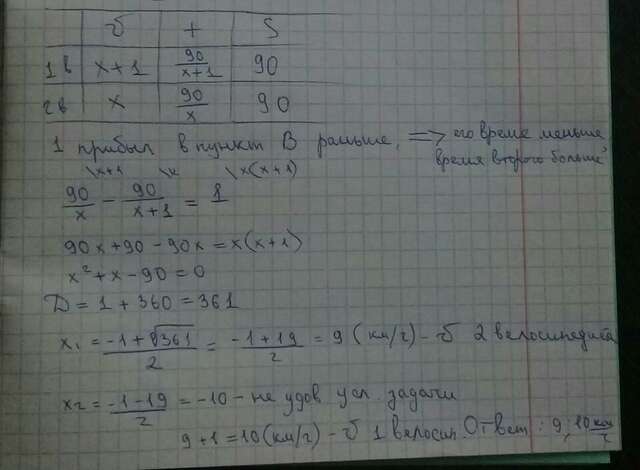 υ t S
1 в x+1 90/(x+1) 90
2 в x 90/x 90
1 прибыл в пункт В раньше, => его время меньше,
время второго больше
\x+1 \x \x(x+1)
90/x - 90/(x+1) = 1
90x+90-90x=x(x+1)
x²+x-90=0
D=1+360=361
x₁=(-1+√361)/2=(-1+19)/2=9 (км/ч)-υ 2 велосипедиста
x₂=(-1-19)/2=-10-не удов усл. задачи
9+1=10(км/ч)-υ 1 велосип. Ответ: 9; 10 км/ч